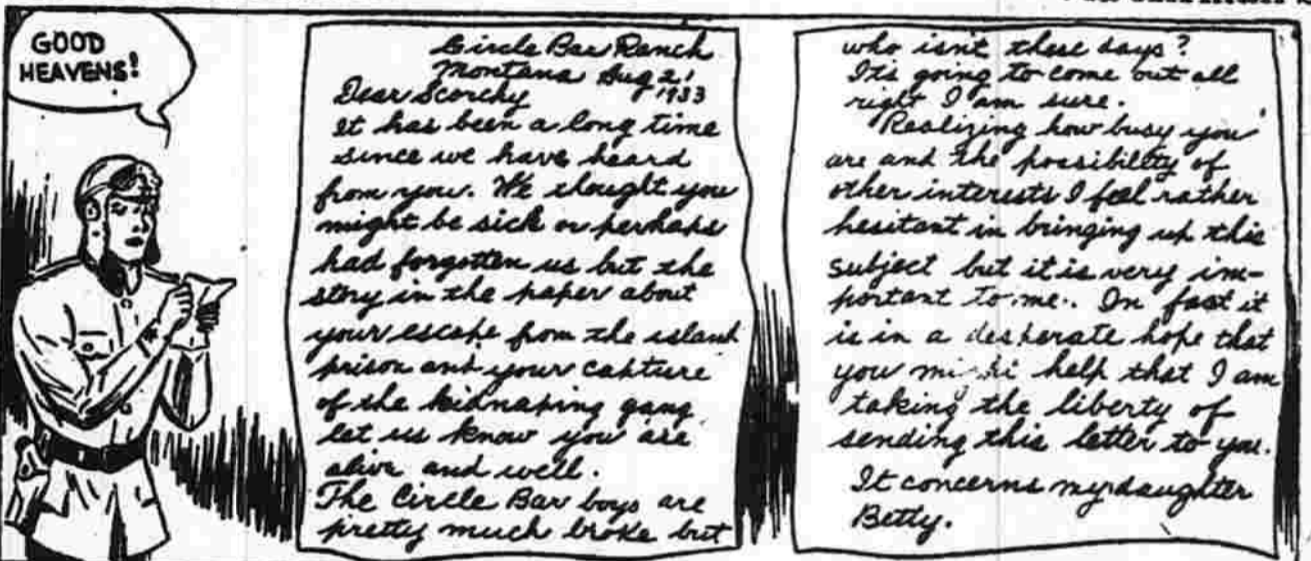 GOOD
HEAVENS!
Circle Bar Ranch
Montana Aug 2,
1933
Dear Scorchy
It has been a long time
since we have heard
from you. We thought you
might be sick or perhaps
had forgotten us but the
story in the paper about
your escape from the island
prison and your capture
of the kidnaping gang
let us know you are
alive and well.
The Circle Bar boys are
pretty much broke but
who isn't these days?
Its going to come out all
right I am sure.
Realizing how busy you
are and the possibility of
other interests I feel rather
hesitant in bringing up this
subject but it is very im-
portant to me. In fact it
is in a desperate hope that
you help that I am
taking the liberty of
sending this letter to you.
It concerns my daughter
Betty.